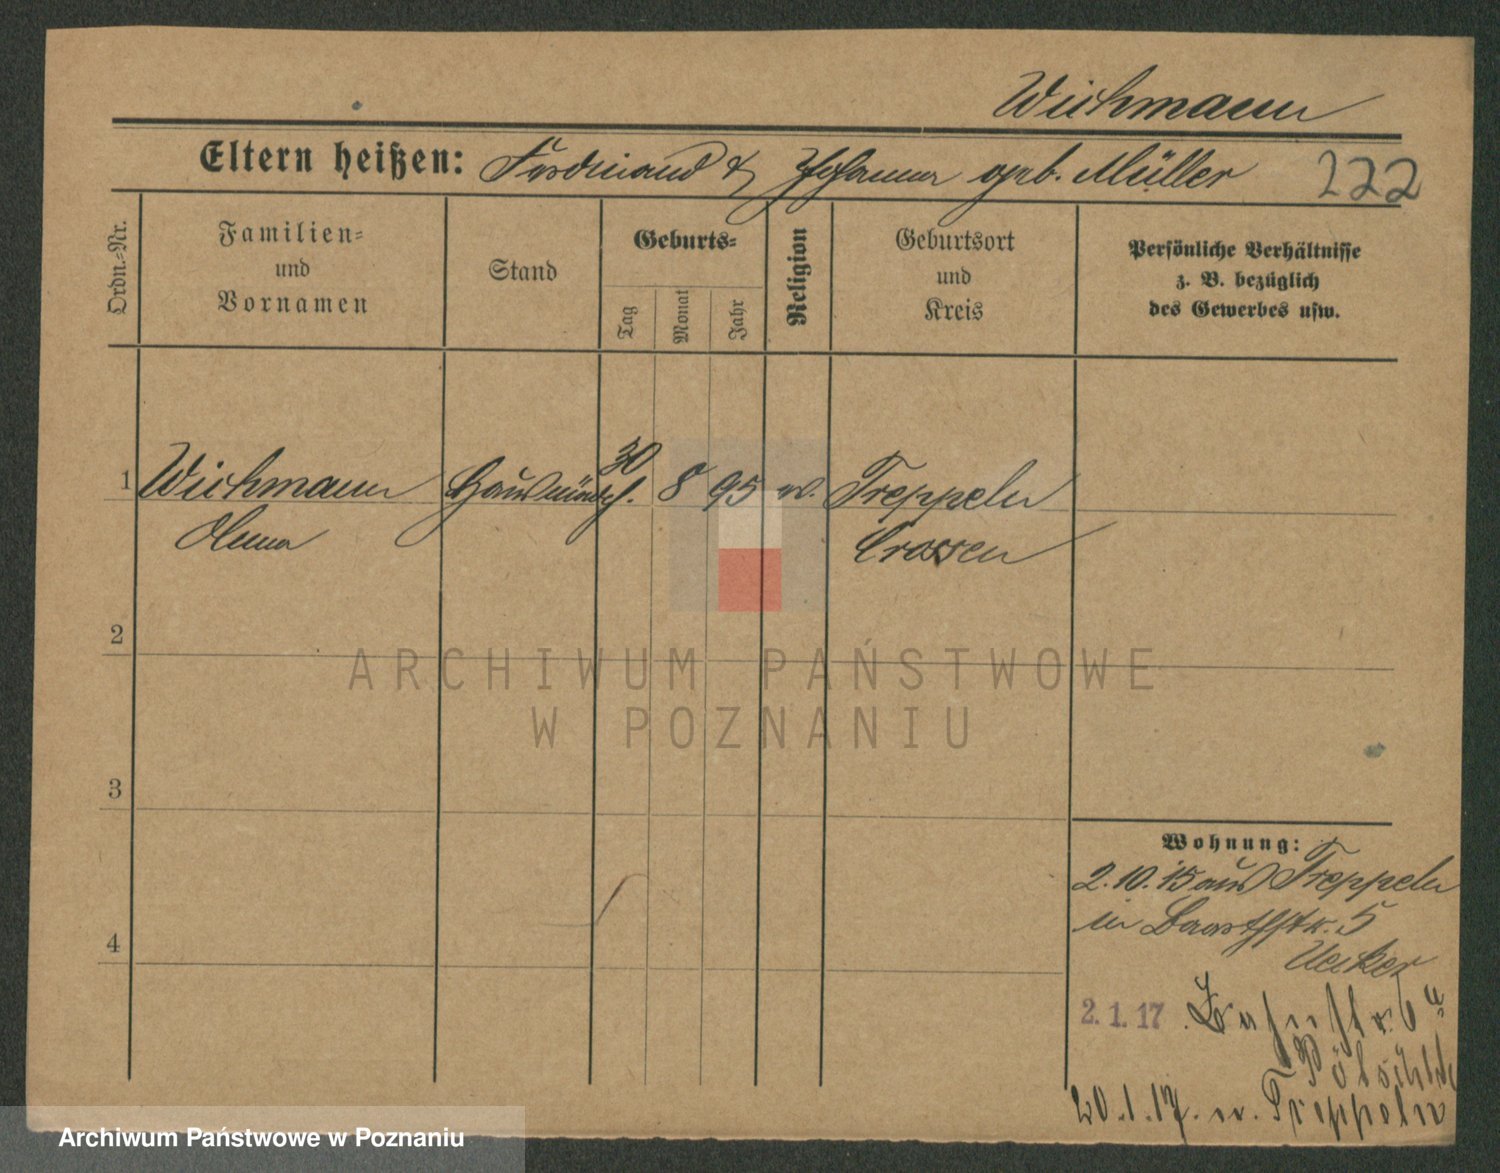 Wichmann
Eltern heißen: Ferdinand & Johanna geb. Müller 222
Ordn.=Nr.
Familien=
und
Vornamen
Stand
Geburts=
Tag
Monat
Jahr
Religion
Geburtsort
und
Kreis
Persönliche Verhältnisse
z. B. bezüglich
des Gewerbes usw.
1 Wichmann 30 8 95 ev. Treppeln
Crossen
2
3
4
ARCHIWUM PAŃSTWOWE
W POZNANIU
Wohnung:
2.10.15 aus Treppeln
in 5
Uecker
2.1.17 Bahnstr. 6a
20.1.17. n. Treppeln
Archiwum Państwowe w Poznaniu